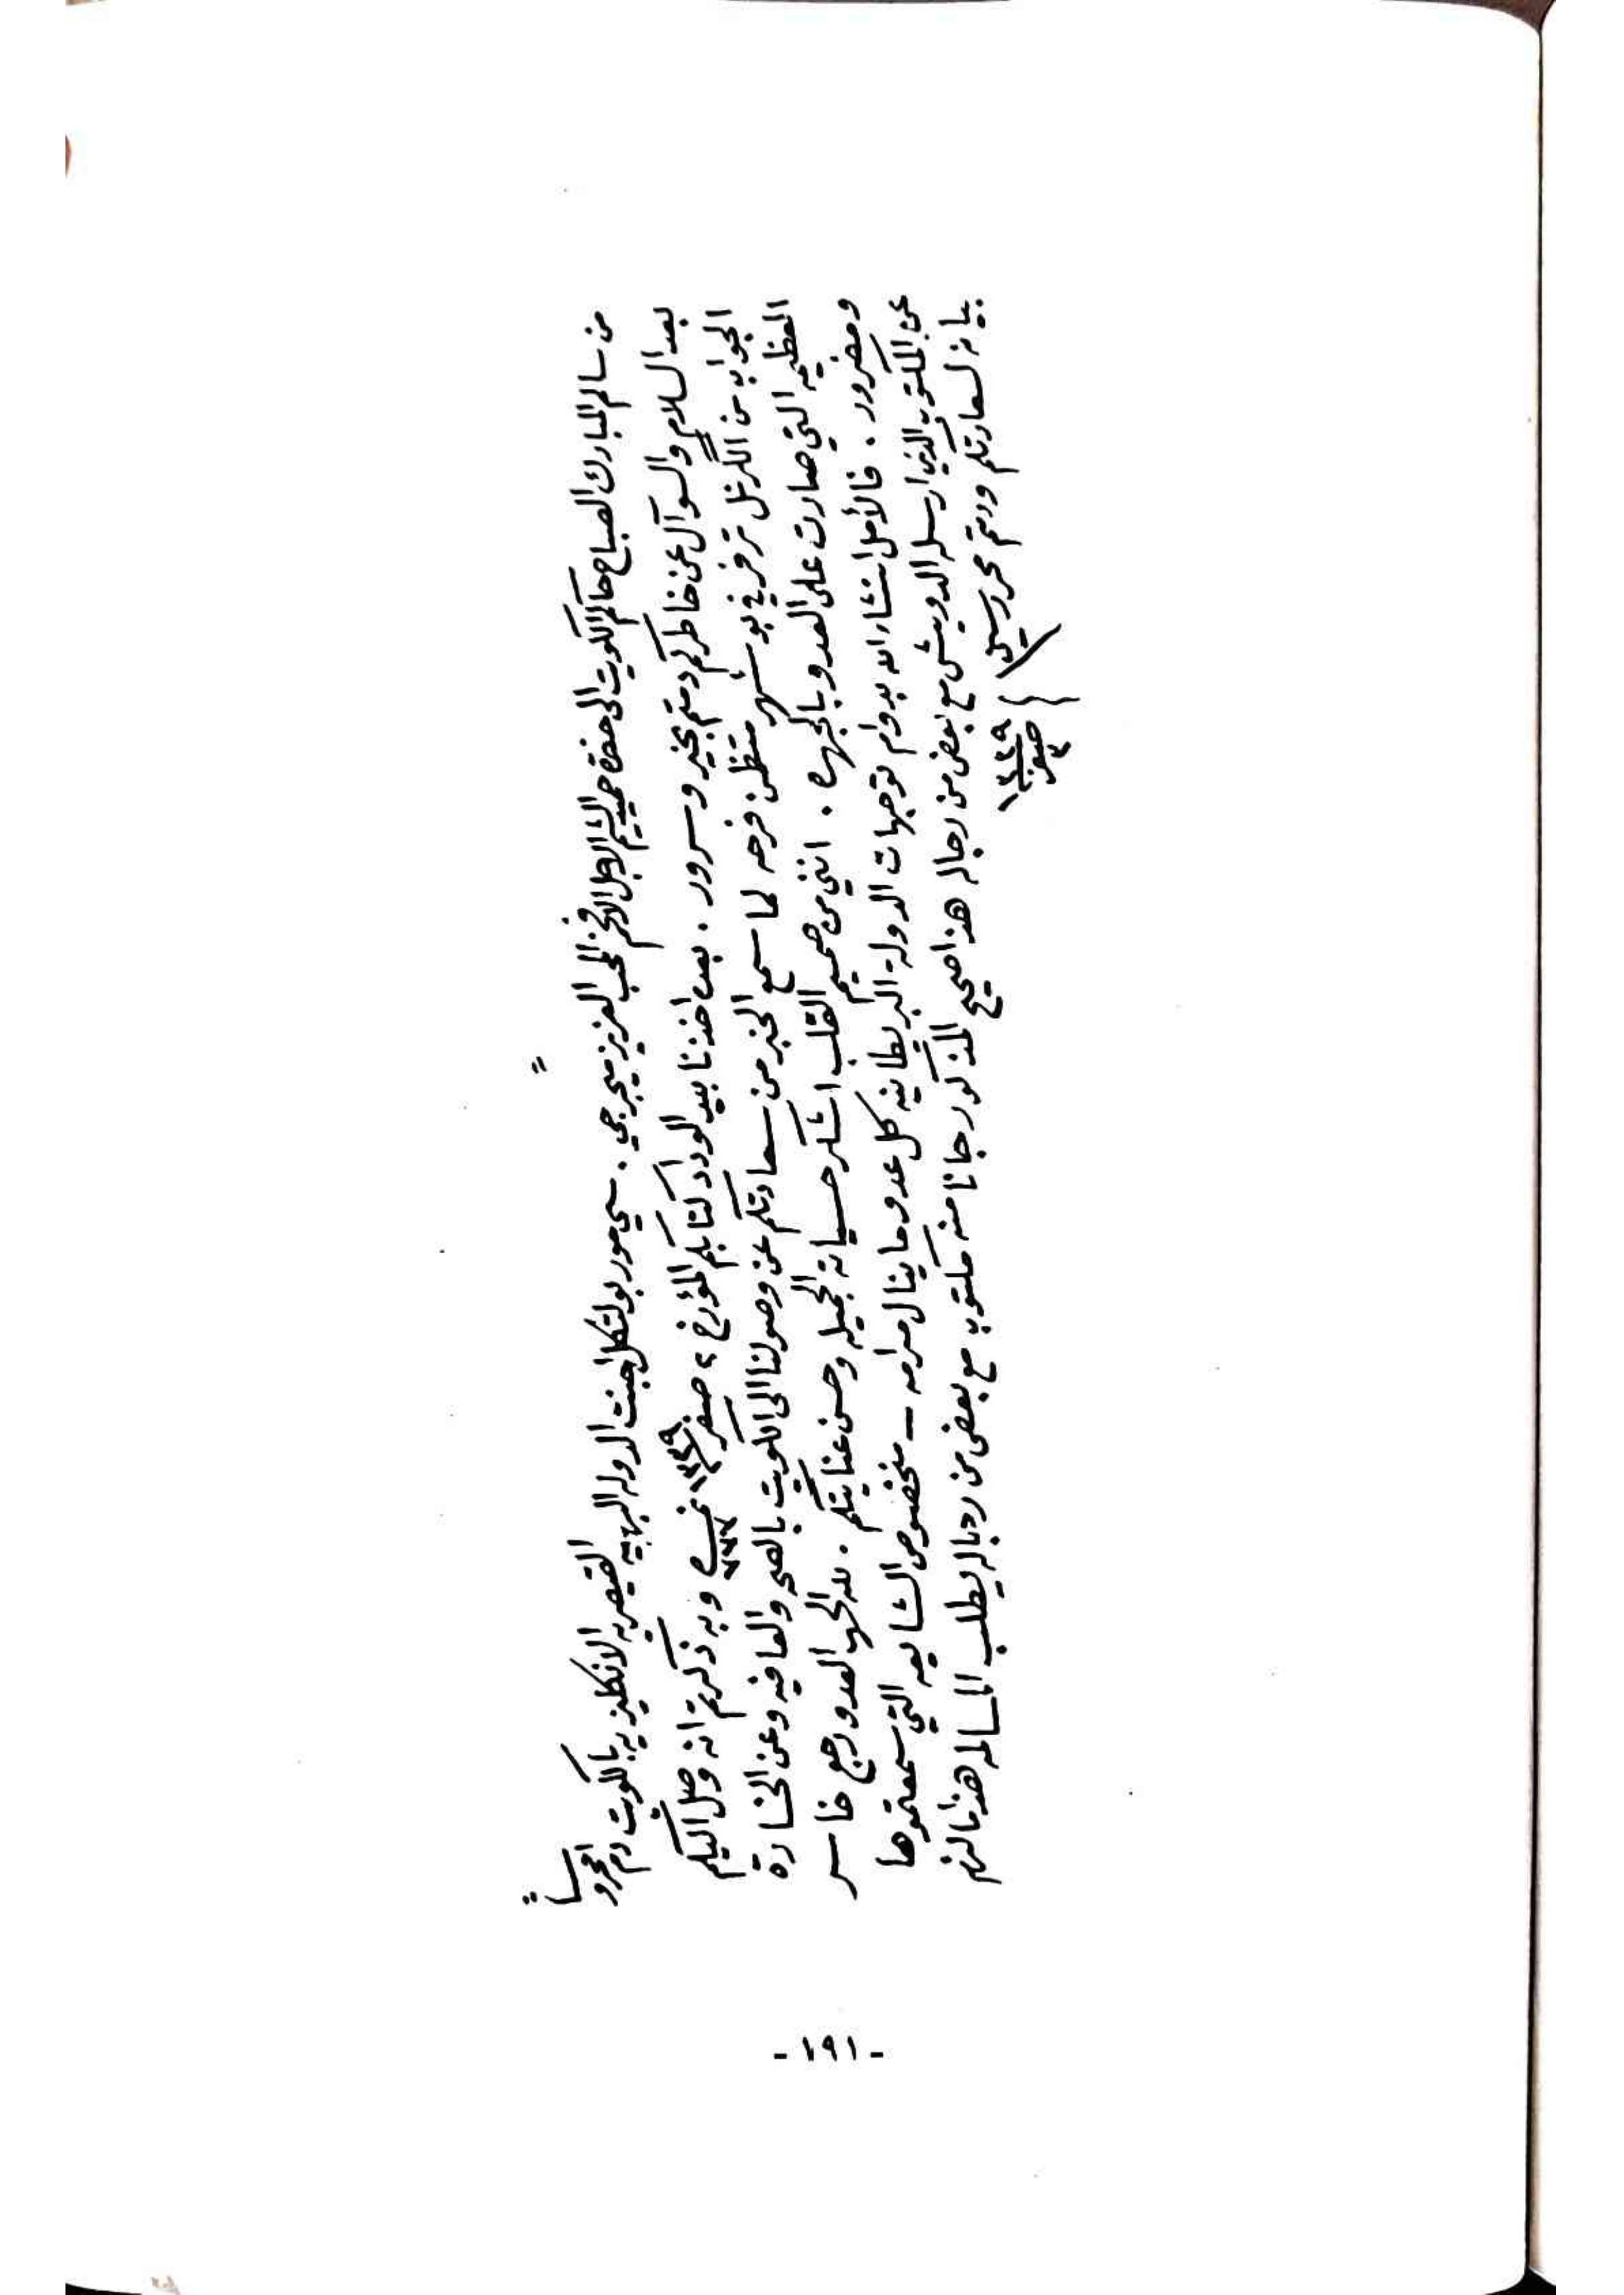 من سالم المبارك الصباح حاكم الكويت الى حضرة حميد الشيم الاجل الافخم المحب العزيز ميجر جي . سي مور بولتكل اجنت الدوله البهيه القيصريه الانكليزيه بالكويت دام محروساً
بعد السلام والسوآل عن خاطركم دمتم بخير وسرور . بعده اخذنا بيد الوداد كتابكم المؤرخ ٤ صفر ١٣٣٩ نمرة وبه ذكرتم انه وصل اليكم
الجواب من الكرنل ترفر في بوشهر متظمن فرحه لما سمع الخبر من سعادتكم عن وصولنا الى الكويت بالصحه والعافيه وعن الخسارة
العظيمه التي صارت على العدو بالجهره . انني من صميم القلب اشكر حسياته الجميله وحسن عنايتكم . لله الحمد العدو رجع خاسر
ومضرور . فالأمل انشاء الله بدوام توجهات الدولة البريطانيه كل عدو ما ينال مرامه – منخصوص الشايعه التي سمعتموها
عن المكتوب الذي ارسله الدويش مع بعض من رجاله هذا صحيح المذكور جانا منه مكتوب مع بعض من رجاله يطلب المسالمه هذا مالزم
بيانه لسعادتكم ودمتم محروسين
٣ صفر ١٣٣٩
- ٢٩١ -